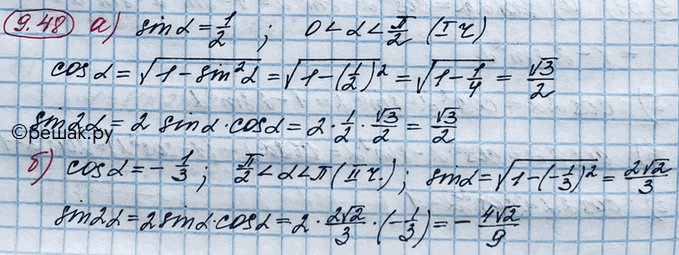 9.48 а) sinα = 1/2 ; 0 < α < π/2 (I ч)
cosα = √(1 − sin²α) = √(1 − (1/2)²) = √(1 − 1/4) = √3/2
sin2α = 2 sinα · cosα = 2 · 1/2 · √3/2 = √3/2
©решак.ру
б) cosα = − 1/3 ; π/2 < α < π (II ч.) ; sinα = √(1 − (−1/3)²) = 2√2/3
sin2α = 2 sinα · cosα = 2 · 2√2/3 · (−1/3) = − 4√2/9